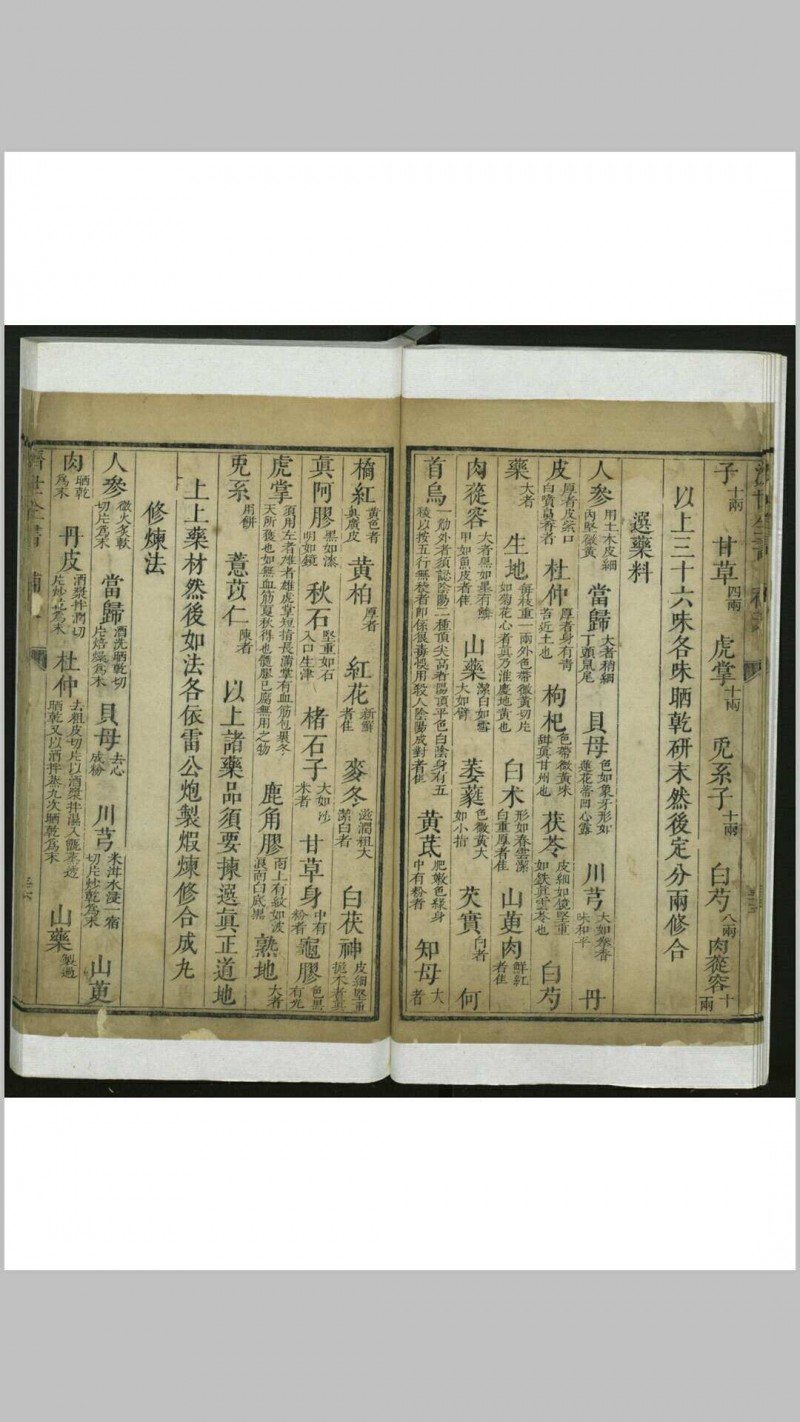 子十兩 甘草四兩 虎掌十兩 兎系子十兩 白芍八兩 肉蓯容十兩
以上三十六味各味晒乾研末然後定分兩修合
選藥料
人參用土木皮細內堅微黃 當歸大者稍細丁頭鼠尾 貝母色如象牙形如蓮花蒂凹心露 川芎大如味和平 丹
皮厚者皮 杜仲厚者身有苦近土也 枸杞色帶微黃味甜真甘州也 茯苓皮細如鏡堅重如鉄真雲苓也 白芍
藥大者 生地每枝重一兩外色帶微黃切片如菊花心者真乃淮慶地黃也 白朮形如春雲潔白重厚者佳 山萸肉鮮紅者佳
肉蓯容大者黑如果有鱗甲如魚皮者佳 山藥潔白如雪大如臂 萎蕤色微黃大如小指 芡實白者 何
首烏一觔外者須認陰陽二種頂尖高者陽頂平色白陰身有五稜以按五行無稜者即係狼毒悞用殺人陰陽成對者佳 黃芪肥嫩色綠身中有粉者 知母大者
橘紅黃色者真廣皮 黃柏厚者 紅花新鮮者佳 麥冬滋潤粗大潔白者 白茯神皮細堅重抱木者真
真阿膠黑如漆明如鏡 秋石堅重如石入口生津 楮石子大如 甘草身中有粉者 龜膠色黑有光
虎掌須用左者雄者雄虎掌短指長滿掌有血筋包裹冬天所獲也如無血筋夏秋得也髓膠已腐無用之物 鹿角膠面上有紋如波浪面白底黑 熟地大者
兎系用餅 薏苡仁陳者 以上諸藥品須要揀選真正道地
上上藥材然後如法各依雷公炮製煆煉修合成九
修煉法
人參微火炙軟切片為末 當歸酒洗晒乾切片焙燥為末 貝母去心成粉 川芎米泔水浸一宿切片炒乾為末 山萸
肉晒乾為末 丹皮酒漿拌潤切片炒乾為末 杜仲去粗皮切片以酒漿拌濕入甑蒸透晒乾又以酒拌蒸九次晒乾為末 山藥製過
濟世全書